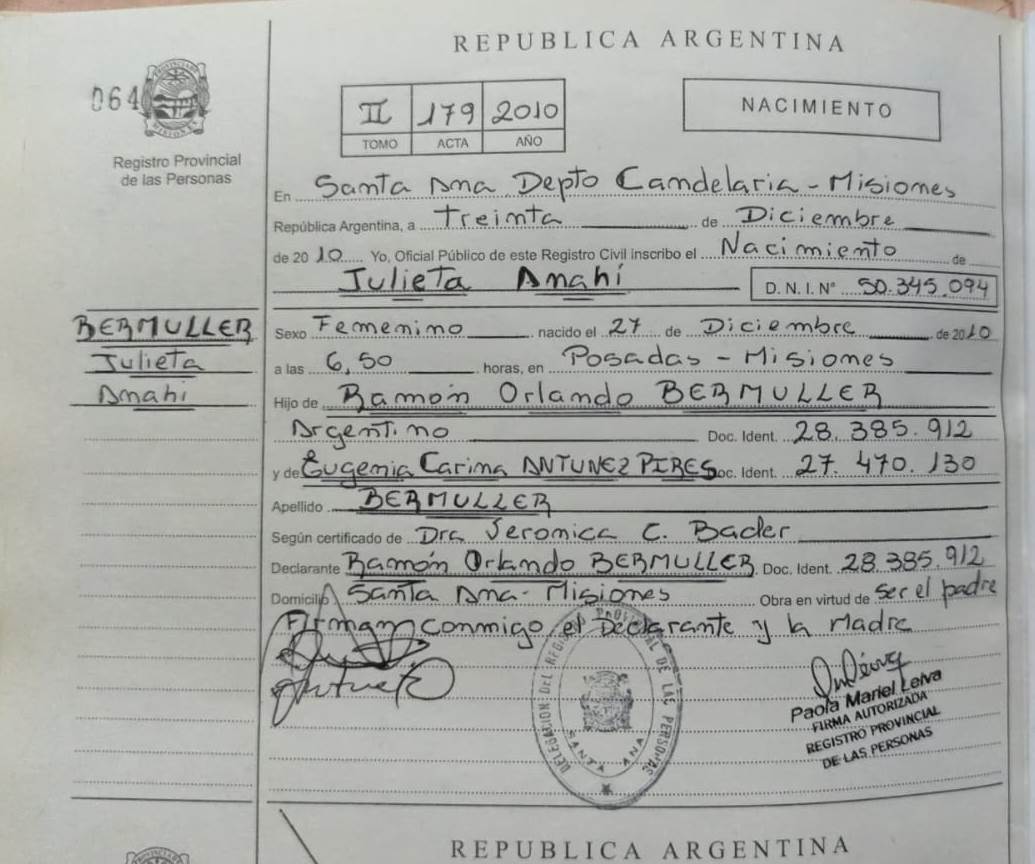 REPUBLICA ARGENTINA
064
PROVINCIA DE MISIONES
Registro Provincial
de las Personas
II 179 2010
TOMO ACTA AÑO
NACIMIENTO
En Santa Ana Depto Candelaria - Misiones
República Argentina, a treinta de Diciembre
de 2010 Yo, Oficial Público de este Registro Civil inscribo el Nacimiento de
Julieta Anahí D. N. I. Nº 50.345.094
BERMULLER
Julieta
Anahí
Sexo Femenino nacido el 27 de Diciembre de 2010
a las 6,50 horas, en Posadas - Misiones
Hijo de Ramón Orlando BERMULLER
Argentino Doc. Ident. 28.385.912
y de Eugenia Carina ANTUNEZ PIRES Doc. Ident. 27.470.130
Apellido BERMULLER
Según certificado de Dra Veronica C. Bader
Declarante Ramón Orlando BERMULLER. Doc. Ident. 28.385.912
Domicilio Santa Ana - Misiones Obra en virtud de ser el padre
Firman conmigo el Declarante y la Madre
DELEGACION DEL REGISTRO PROVINCIAL DE LAS PERSONAS
SANTA ANA
Paola Mariel Leiva
FIRMA AUTORIZADA
REGISTRO PROVINCIAL
DE LAS PERSONAS
REPUBLICA ARGENTINA